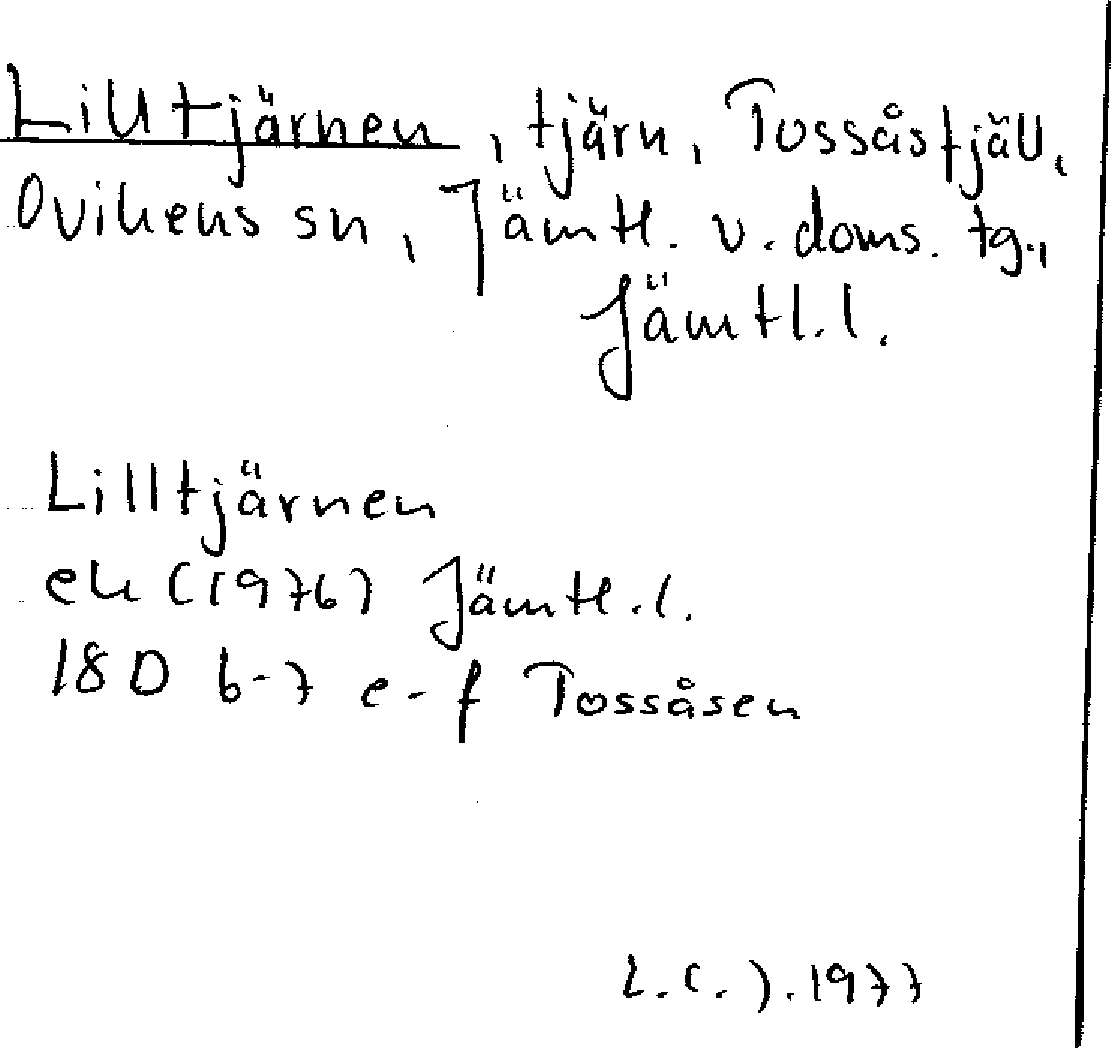 Lilltjärnen, tjärn, Tossåsfjäll,
Ovikens sn, Jämtl. v. doms. tg.,
Jämtl.l.
Lilltjärnen
ek (1976) Jämtl.l.
18 D 6-7 e-f Tossåsen
L.C.J. 1977